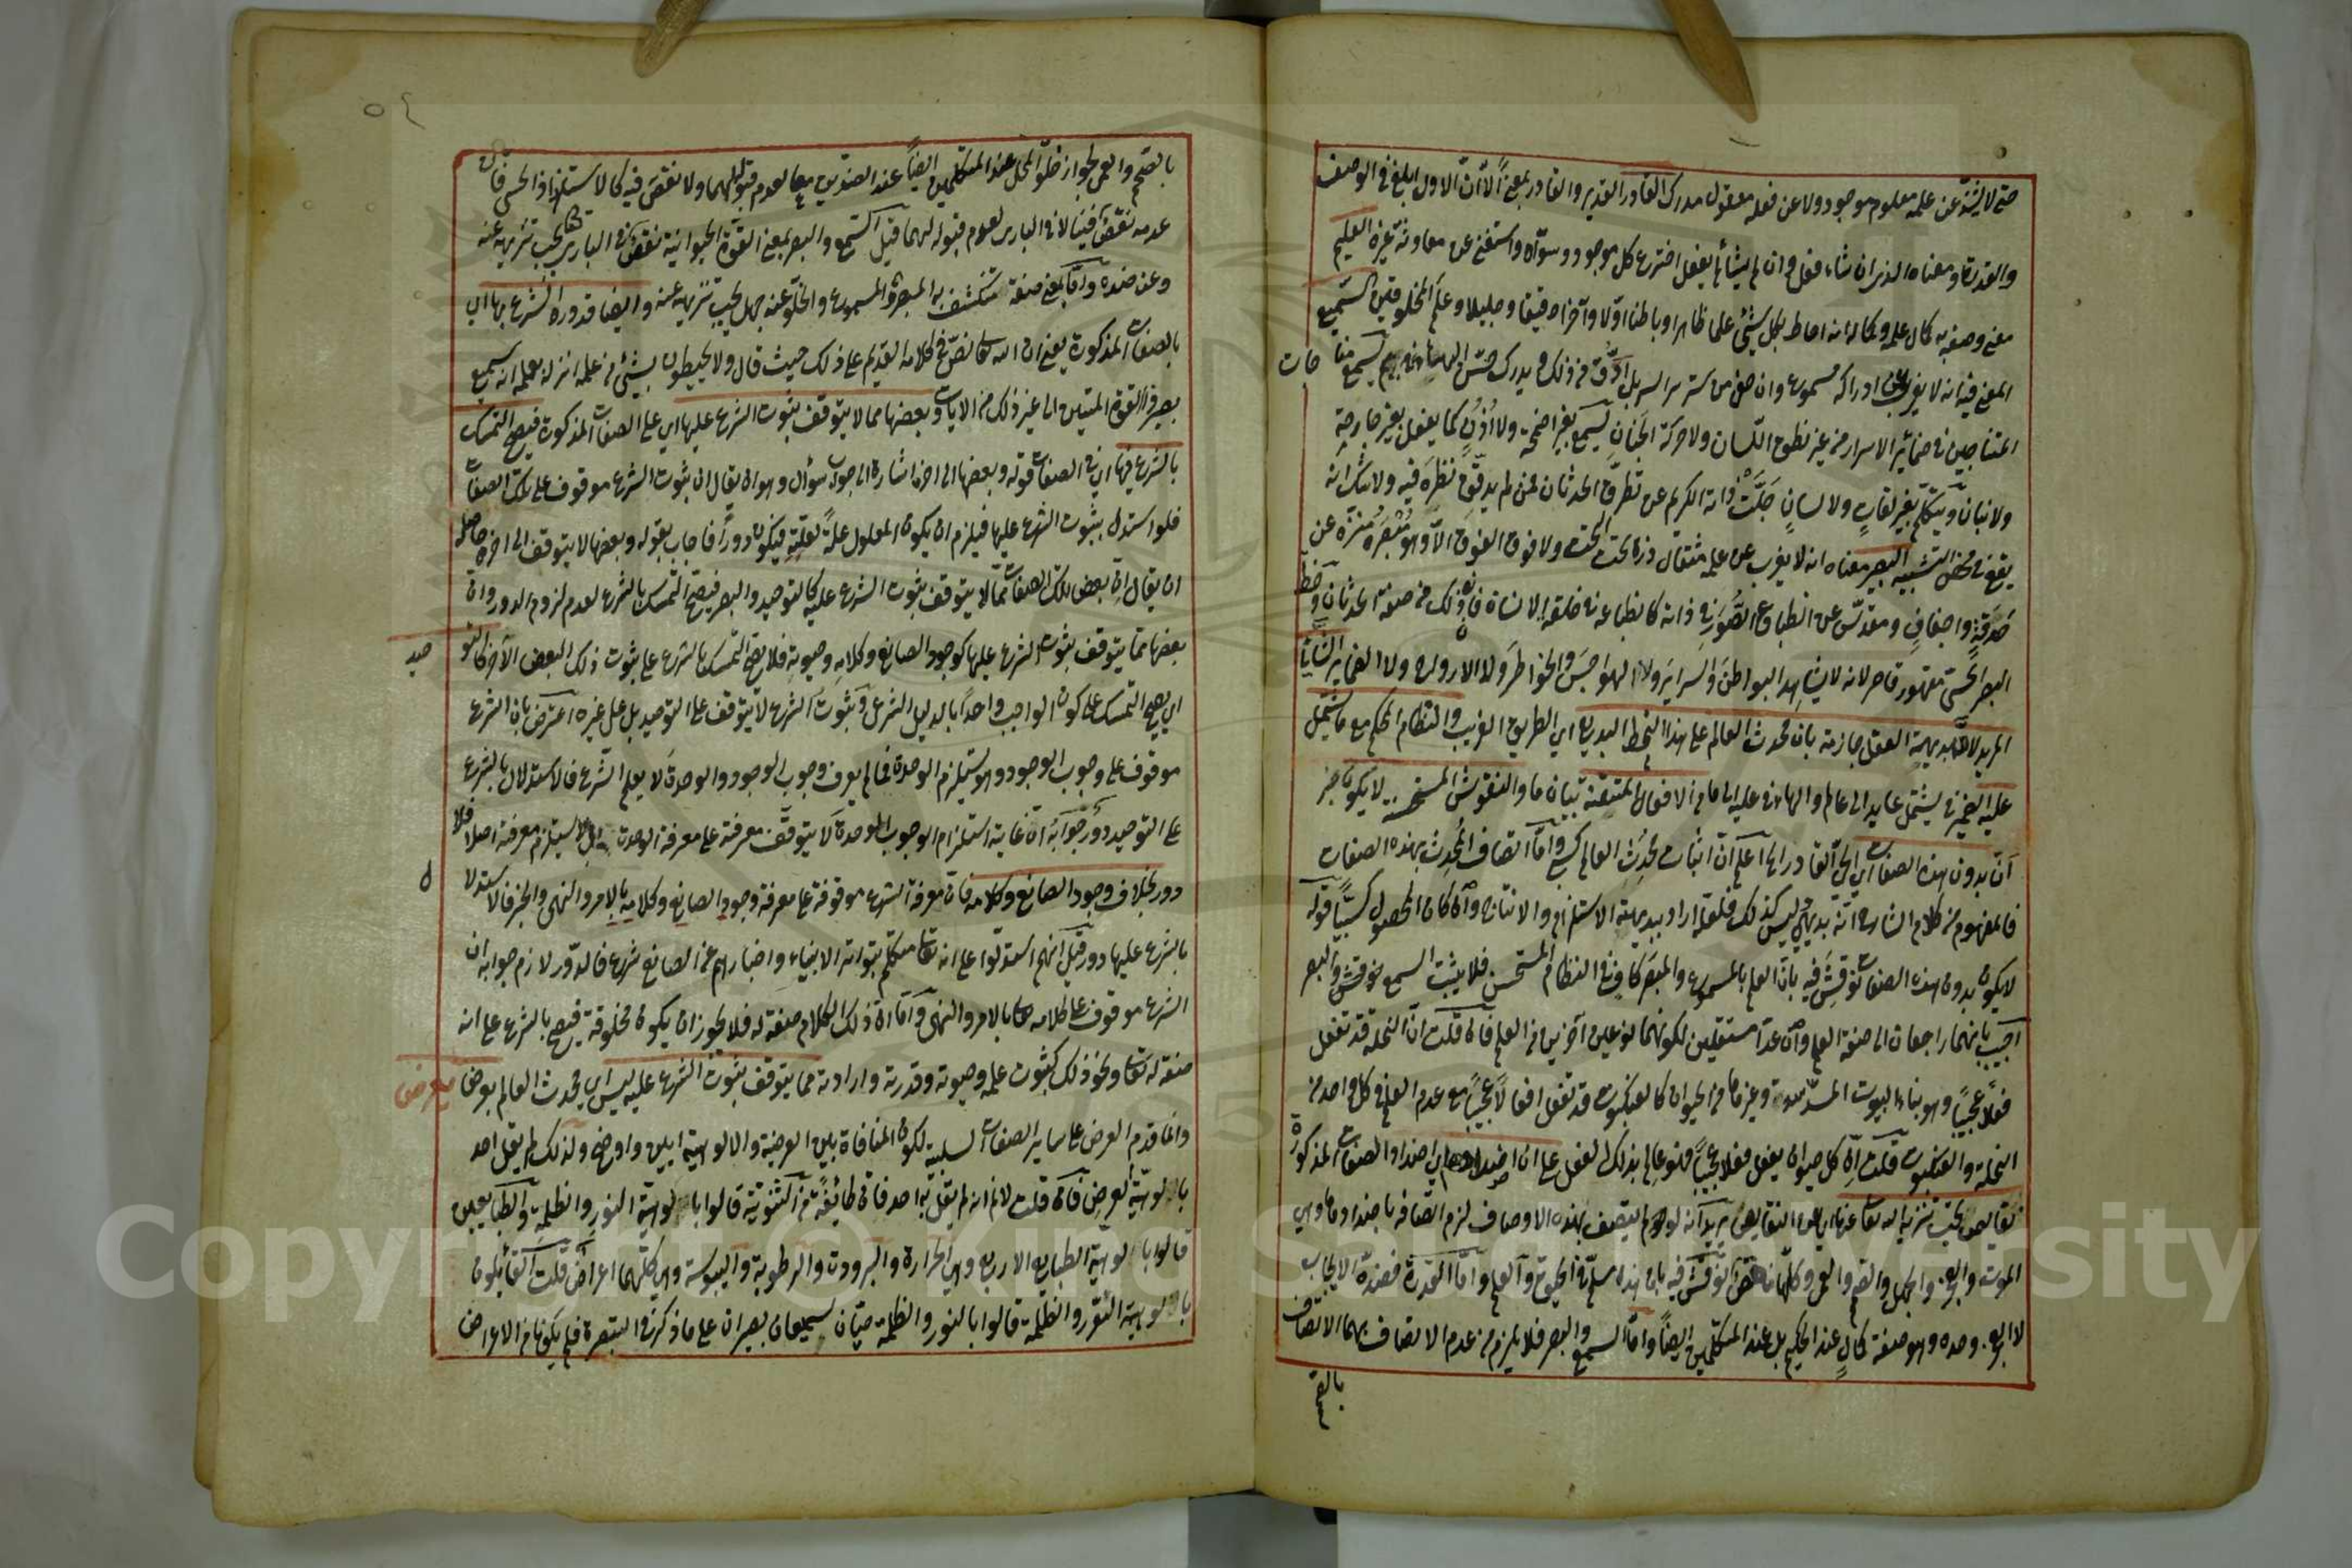 حتى لا يشذ عن علمه معلوم موجود ولا عن فعله معقول مدرك القادر القدير والقادر بمعنى الا أن الاول ابلغ في الوصف
والقدرة ومعناه الذي ان شاء فعل وان لم يشأ لم يفعل اخترع كل موجود وسواه واستغنى عن معاونة غيره العليم
معنى وصفه به كمال علمه وكماله انه احاط بكل شيء علما ظاهرا وباطنا اولا وآخرا دقيقا وجليلا وعلم المخلوقين السميع
المعنى فيه انه لا يعزب عن ادراكه مسموع وان خفي من ستر السر بل ادق من ذلك يدرك يسمع مناجات
المتناجين في ضمائر الاسرار من غير نطق اللسان ولا حركة الجنان يسمع بغير اصمخة ولا اذن كما يفعل بغير جارحة
ولا بنان ويتكلم بغير ولا لسان جلت ذاته الكريم عن تطرق الحدثان فمن لم يدقق نظره فيه ولا شك انه
يقع في محض التشبيه البصير معناه انه لا يعزب عن علمه مثقال ذرة تحت التحت ولا فوق الفوق الا وهو مبصره منزه عن
حدقة واجفان ومقدس عن انطباع الصور في ذاته كانطباعه في خلقه الانسان فان ذلك من صفة الحدثان وحظ
البصر الحسي مقهور قاصر لانه لا يشاهد البواطن والسراير ولا الهواجس والخواطر ولا الارواح ولا الضماير الشائي
المريد لان بديهة العقل جازمة بان محدث العالم على هذا النمط البديع اي الطريق الغريب والنظام المحكم مع ما يشتمل
عليه الضمير في يشتمل عايد الى عالم والهاء في عليه الى ما من الافعال المتقنة بيان ما والنقوش المستحسنة لا يكون
بدون هذه الصفات اي الحي القادر الى اعلم ان اثبات محدث العالم كسبي واما اتصاف المحدث بهذه الصفات
فالمفهوم من كلام الشارح انه بديهي وليس كذلك فلعله اراد ببديهته الاستلزام والانتاج وان كان الحصول كسبيا قوله
لا يكون بدون هذه الصفات نوقش فيه بان العلم بالمسموع والمبصر كاف في النظام المستحسن فلا يثبت السمع والبصر
اجيب بانهما راجعان الى صفة العلم وان عدا مستقلين لكونهما نوعين آخرين من العلم فان قلت ان النحلة قد تفعل
فعلا عجيبا وهو بناء البيوت المسدسة وغيرها من الحيوان كالعنكبوت قد تفعل افعالا عجيبا مع عدم العلم في كل واحد من
النحلة والعنكبوت قلت ان كل حيوان يفعل فعلا عجيبا فهو عالم بذلك الفعل على ان اضدادها اي اضداد الصفات المذكورة
نقايص يجب تنزيه الله تعالى عنها اي عن النقايص يريد انه لو لم يتصف بهذه الاوصاف لزم اتصافه باضدادها وهي
الموت والعجز والجهل والصم والعمى وكلها نقص نوقش فيه بان هذه مسلم في الحيوة والعلم واما القدرة فضده الايجاب
لا العجز وحده وهو صفة كمال عند الحكيم بل عند المتكلمين ايضا واما السمع والبصر فلا يلزم من عدم الاتصاف بهما الاتصاف
بالصم
بالصم والعمى لجواز خلو المحل عند المتكلمين ايضا عند الضدين معا لعدم قبولهما ولا نقص فيه كالاستلذاذ الحسي فان
عدمه نقص فينا لا في الباري لعدم قبوله لهما قيل السمع والبصر بمعنى القوة الحيوانية نقص في الباري تعالى يجب تنزيهه عنه
وعن ضده واما بمعنى صفة تنكشف به المبصر والمسموع والخلو عنه جهل يجب تنزيهه عنه وايضا قد ورد الشرع بها اي
بالصفات المذكورة يعني ان الله تعالى نص في كلامه القديم على ذلك حيث قال ولا يحيطون بشيء من علمه انزله بعلمه انه سميع
بصير ذو القوة المتين الى غير ذلك من الايات وبعضها مما لا يتوقف ثبوت الشرع عليها اي على الصفات المذكورة فيصح التمسك
بالشرع فيها اي في الصفات قوله وبعضها الى اخره اشارة الى جواب سؤال وهو ان يقال ان ثبوت الشرع موقوف على تلك الصفات
فلو استدل بثبوت الشرع عليها فيلزم ان يكون المعلول علة لعلته فيكون دورا فاجاب بقوله وبعضها لا يتوقف الى اخره حاصله
ان يقال ان بعض تلك الصفات مما لا يتوقف ثبوت الشرع عليه كالتوحيد والبصر فيصح التمسك بالشرع لعدم لزوم الدور وان
بعضها مما يتوقف ثبوت الشرع عليها كوجود الصانع وكلامه وحيوته فلا يصح التمسك بالشرع على ثبوت ذلك البعض الآخر كالتوحيد
اي يصح التمسك على كون الواجب واحدا بالدليل الشرعي وثبوت الشرع لا يتوقف على التوحيد بل على غيره اعترض بان الشرع
موقوف على وجوب الوجود وهو يستلزم الوحدة فما لم يعرف وجوب الوجود والوحدة لا يعلم الشرع فالاستدلال بالشرع
على التوحيد دور جوابه ان غاية استلزام الوجوب الوحدة لا يتوقف معرفته على معرفة الوحدة بل لا يستلزم معرفة اصلا فلا
دور بخلاف وجود الصانع وكلامه فان معرفة الشرع موقوفة على معرفة وجود الصانع وكلامه بالامر والنهي والخبر فالاستدلال
بالشرع عليها دور قيل انهم استدلوا على انه تعالى متكلم بتواتر الانبياء واخبارهم عن الصانع شرع فالدور لازم جوابه ان
الشرع موقوف على كلامه تعالى بالامر والنهي واما ان ذلك الكلام صفة له فلا يجوز ان يكون مخلوقة فيصح بالشرع على انه
صفة له تعالى ونحو ذلك كثبوت علمه وحيوته وقدرته وارادته مما يتوقف ثبوت الشرع عليه ليس اي محدث العالم بعرض
بعرض
وانما قدم العرض على ساير الصفات السلبية لكون المنافاة بين العرضية والالوهية ابين واوضح ولذلك لم يقل احد
بالوهية العرض فان قلت لا نم انه لم يقل به احد فان طائفة من الثنوية قالوا بالوهية النور والظلمة والطبايعيين
قالوا بالوهية الطبايع الاربع وهي الحرارة والبرودة والرطوبة واليبوسة وهي كلها اعراض قلت القائلون
بالوهية النور والظلمة قالوا بالنور والظلمة حيان سميعان بصيران على ما ذكر في التبصرة فلم يكونا من الاعراض